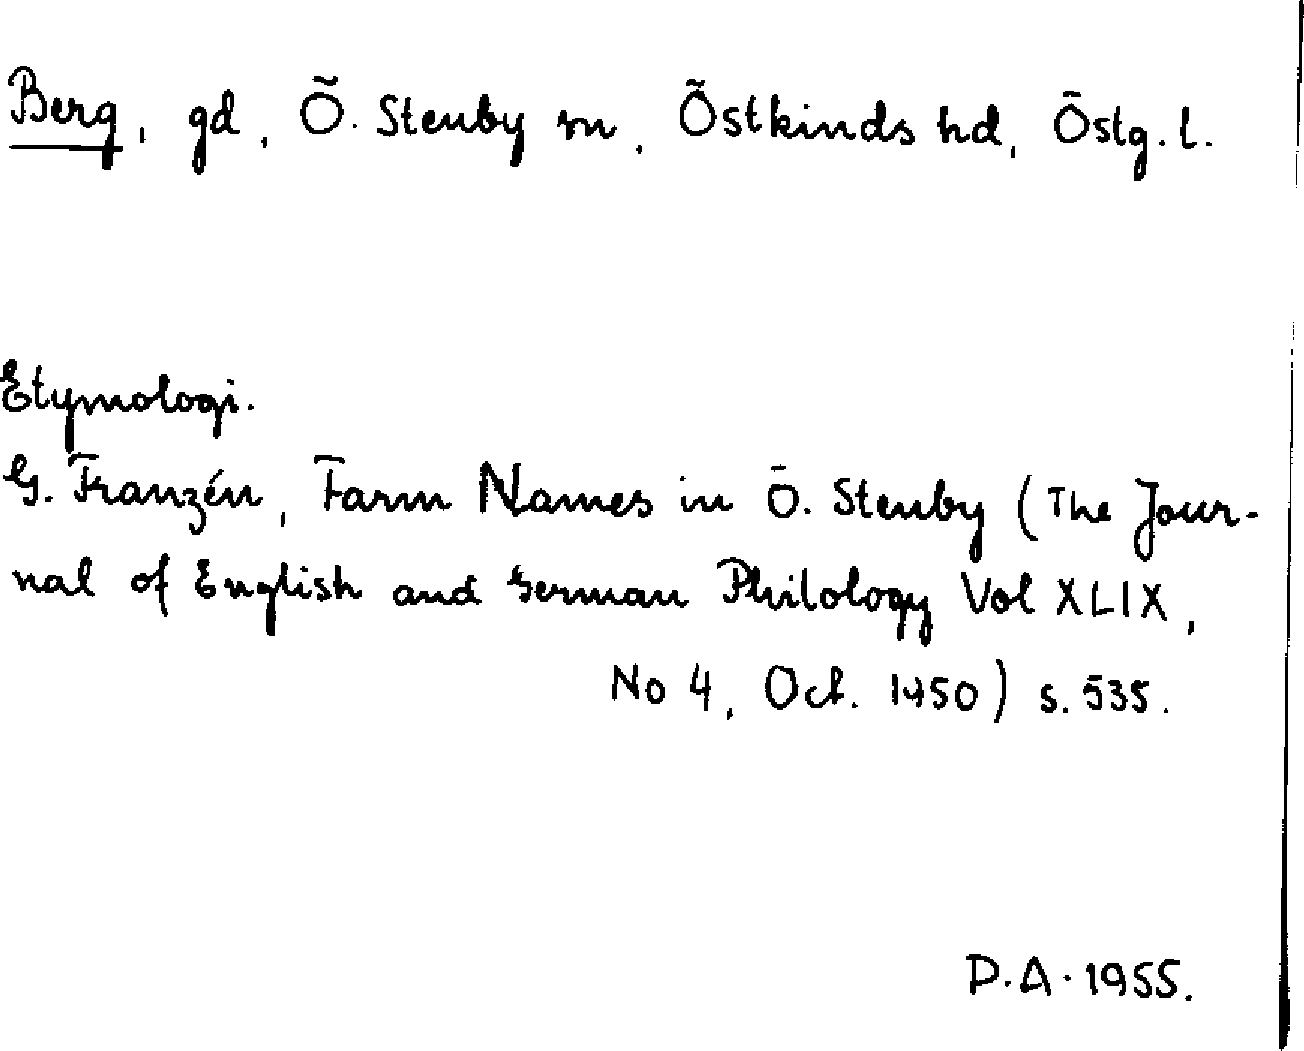 Berg, gd, Ö. Stenby sn, Östkinds hd, Östg. l.
Etymologi.
G. Franzén, Farm Names in Ö. Stenby (The Jour-
nal of English and German Philology Vol XLIX,
No 4, Oct. 1950) s. 535.
D.A. 1955.